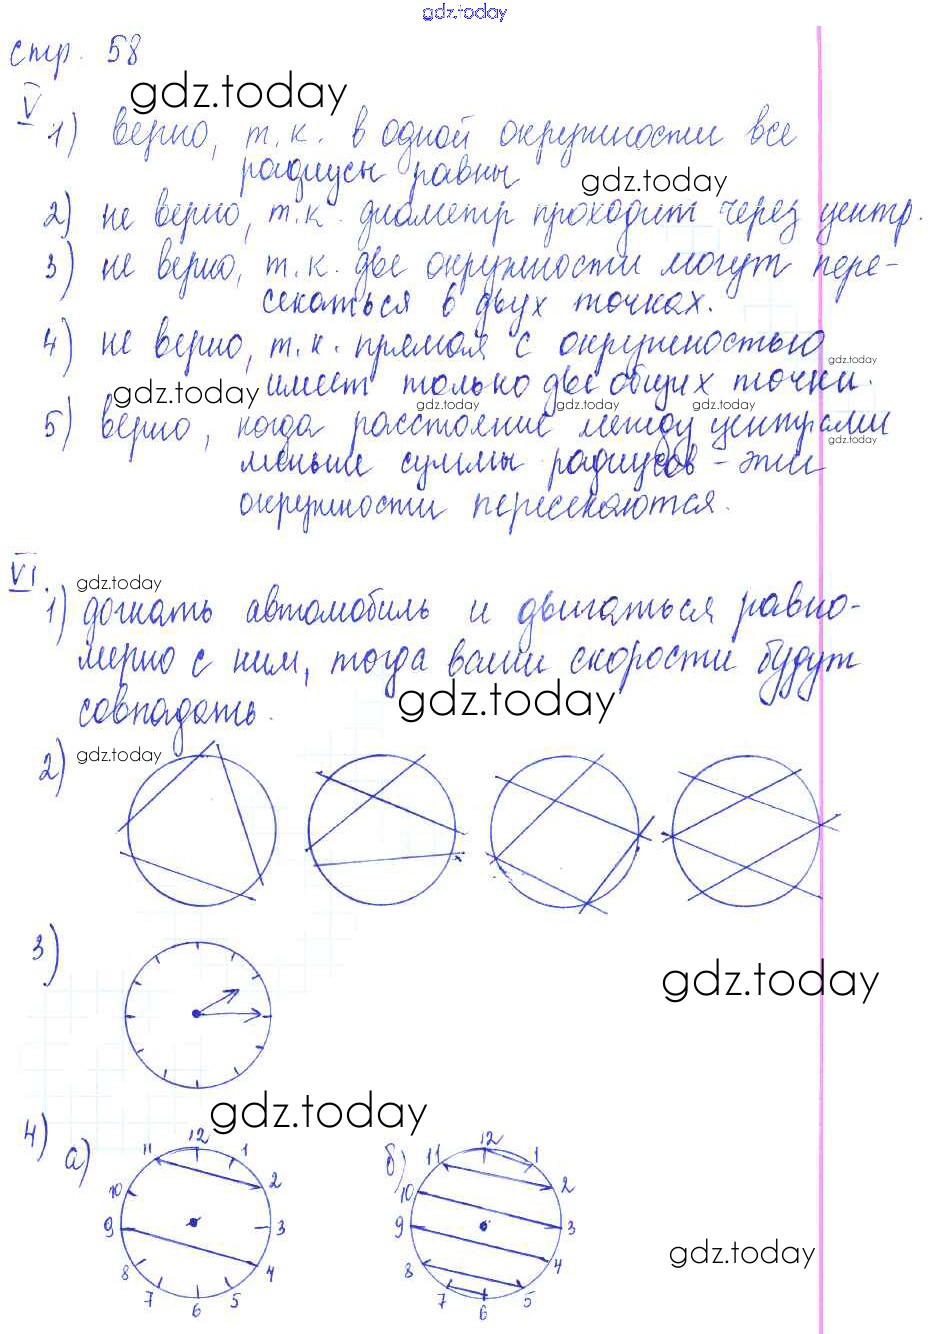 gdz.today
стр. 58
gdz.today
V
1) верно, т.к. в одной окружности все
радиусы равны
gdz.today
2) не верно, т.к. диаметр проходит через центр.
3) не верно, т.к. две окружности могут пере-
секаться в двух точках.
4) не верно, т.к. прямая с окружностью
gdz.today
имеет только две общих точки.
gdz.today
gdz.today gdz.today gdz.today
5) верно, когда расстояние между центрами
gdz.today
меньше суммы радиусов - эти
окружности пересекаются.
VI.
gdz.today
1) догнать автомобиль и двигаться равно-
мерно с ним, тогда ваши скорости будут
gdz.today
совпадать.
2) gdz.today
3)
gdz.today
gdz.today
4) а) 12 1 2 3 4 5 6 7 8 9 10 11
б) 12 1 2 3 4 5 6 7 8 9 10 11
gdz.today